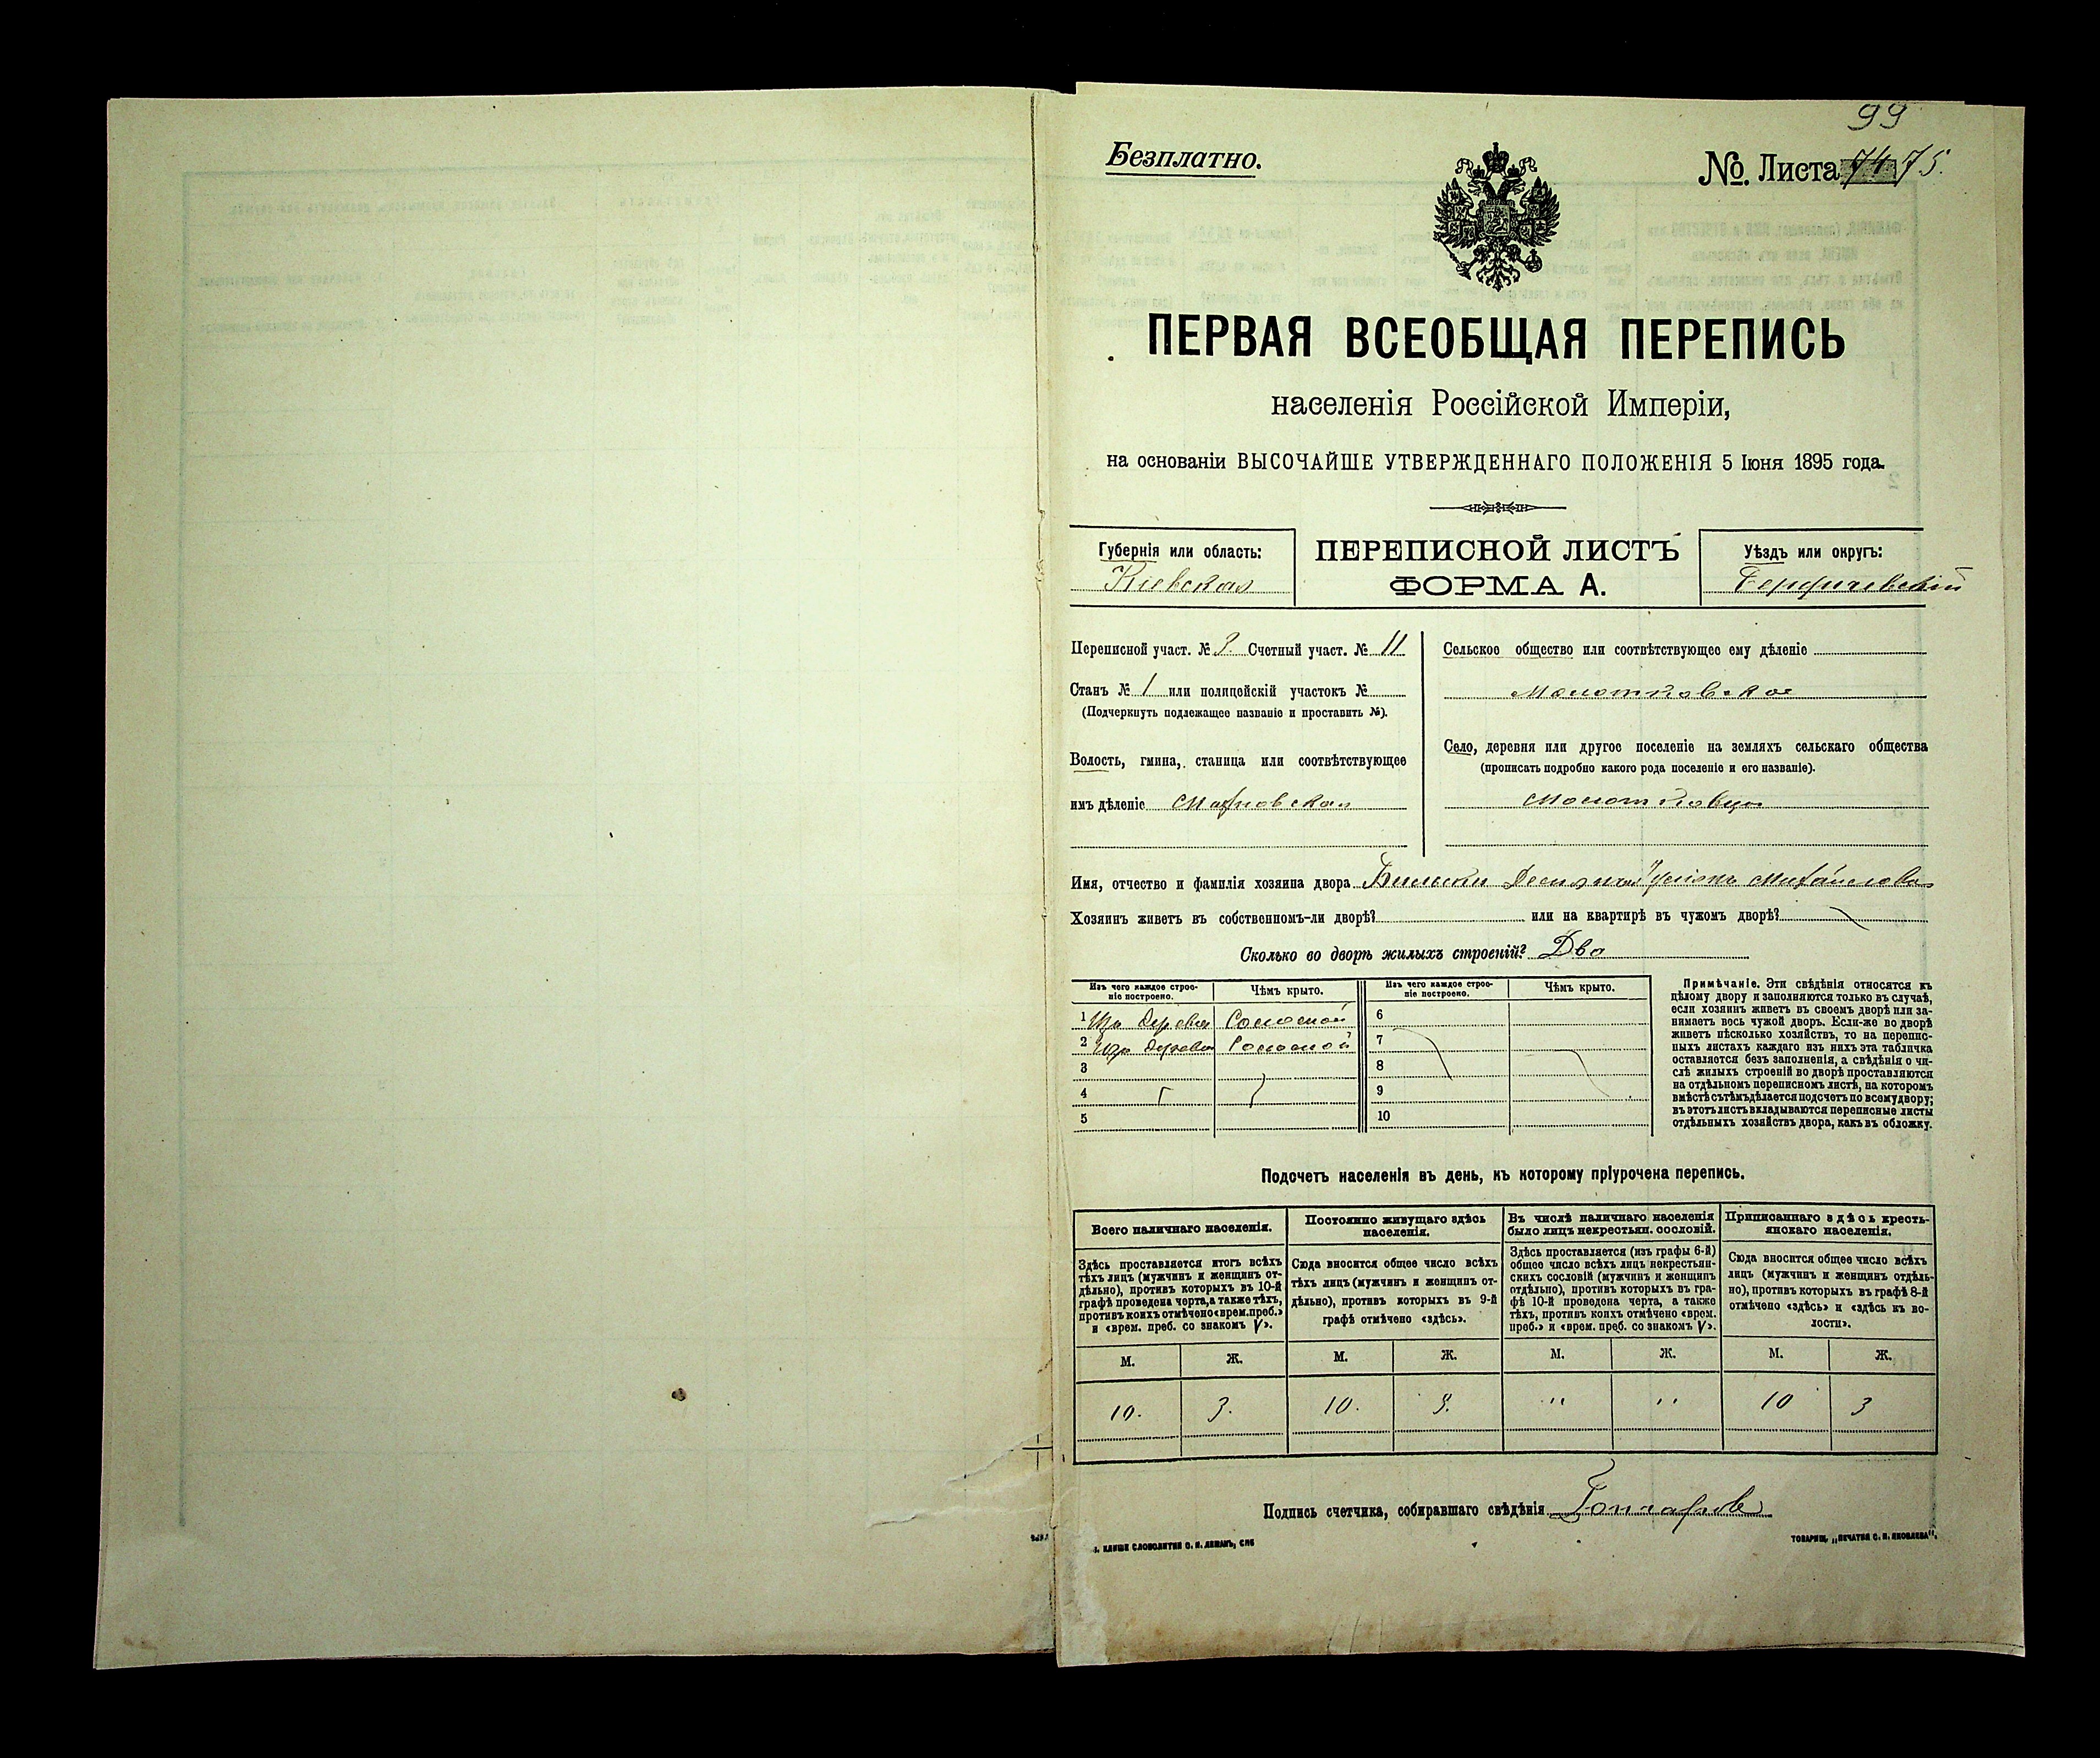 99
Безплатно.
№. Листа 74 75.
ПЕРВАЯ ВСЕОБЩАЯ ПЕРЕПИСЬ
населенія Россійской Имперіи,
на основаніи ВЫСОЧАЙШЕ УТВЕРЖДЕННАГО ПОЛОЖЕНІЯ 5 Іюня 1895 года.
Губернія или область:
Кіевская
ПЕРЕПИСНОЙ ЛИСТЪ
ФОРМА А.
Уѣздъ или округъ:
Бердичевскій
Переписной участ. № Счетный участ. № 11
Станъ № 1 или полицейскій участокъ №
(Подчеркнуть подлежащее названіе и проставить №).
Волость, гмина, станица или соотвѣтствующее
имъ дѣленіе Махновская
Сельское общество или соотвѣтствующее ему дѣленіе
Молотковское
Село, деревня или другое поселеніе на земляхъ сельскаго общества
(прописать подробно какого рода поселеніе и его названіе).
Молотковцы
Имя, отчество и фамилія хозяина двора Михайлова
Хозяинъ живетъ въ собственномъ-ли дворѣ? или на квартирѣ въ чужомъ дворѣ?
Сколько во дворѣ жилыхъ строеній? Два
Изъ чего каждое строе-
ніе построено.
Чѣмъ крыто.
1 Изъ дерева Соломой
2 Изъ дерева Соломой
3
4
5
Изъ чего каждое строе-
ніе построено.
Чѣмъ крыто.
6
7
8
9
10
Примѣчаніе. Эти свѣдѣнія относятся къ
цѣлому двору и заполняются только въ случаѣ,
если хозяинъ живетъ въ своемъ дворѣ или за-
нимаетъ весь чужой дворъ. Если-же во дворѣ
живетъ нѣсколько хозяйствъ, то на перепис-
ныхъ листахъ каждаго изъ нихъ эта табличка
оставляется безъ заполненія, а свѣдѣнія о чи-
слѣ жилыхъ строеній во дворѣ проставляются
на отдѣльномъ переписномъ листѣ, на которомъ
вмѣстѣ съ тѣмъ дѣлается подсчетъ по всему двору;
въ этотъ листъ вкладываются переписные листы
отдѣльныхъ хозяйствъ двора, какъ въ обложку.
Подсчетъ населенія въ день, къ которому пріурочена перепись.
Всего наличнаго населенія.
Здѣсь проставляется итогъ всѣхъ
тѣхъ лицъ (мужчинъ и женщинъ от-
дѣльно), противъ которыхъ въ 10-й
графѣ проведена черта, а также тѣхъ,
противъ коихъ отмѣчено «врем. преб.»
и «врем. преб. со знакомъ V».
Постоянно живущаго здѣсь
населенія.
Сюда вносится общее число всѣхъ
тѣхъ лицъ (мужчинъ и женщинъ от-
дѣльно), противъ которыхъ въ 9-й
графѣ отмѣчено «здѣсь».
Въ числѣ наличнаго населенія
было лицъ некрестьян. сословій.
Здѣсь проставляется (изъ графы 6-й)
общее число всѣхъ лицъ некрестьян-
скихъ сословій (мужчинъ и женщинъ
отдѣльно), противъ которыхъ въ гра-
фѣ 10-й проведена черта, а также
тѣхъ, противъ коихъ отмѣчено «врем.
преб.» и «врем. преб. со знакомъ V».
Приписаннаго здѣсь кресть-
янскаго населенія.
Сюда вносится общее число всѣхъ
лицъ (мужчинъ и женщинъ отдѣль-
но), противъ которыхъ въ графѣ 8-й
отмѣчено «здѣсь» и «здѣсь въ во-
лости».
М. Ж. М. Ж. М. Ж. М. Ж.
10. 3. 10. 3. " " 10 3
Подпись счетчика, собиравшаго свѣдѣнія Гончаровъ
КЛИШЕ СЛОВОЛИТНИ О. И. ЛЕМАНЪ, СПБ
ТОВАРИЩ. „ПЕЧАТНЯ С. П. ЯКОВЛЕВА“.